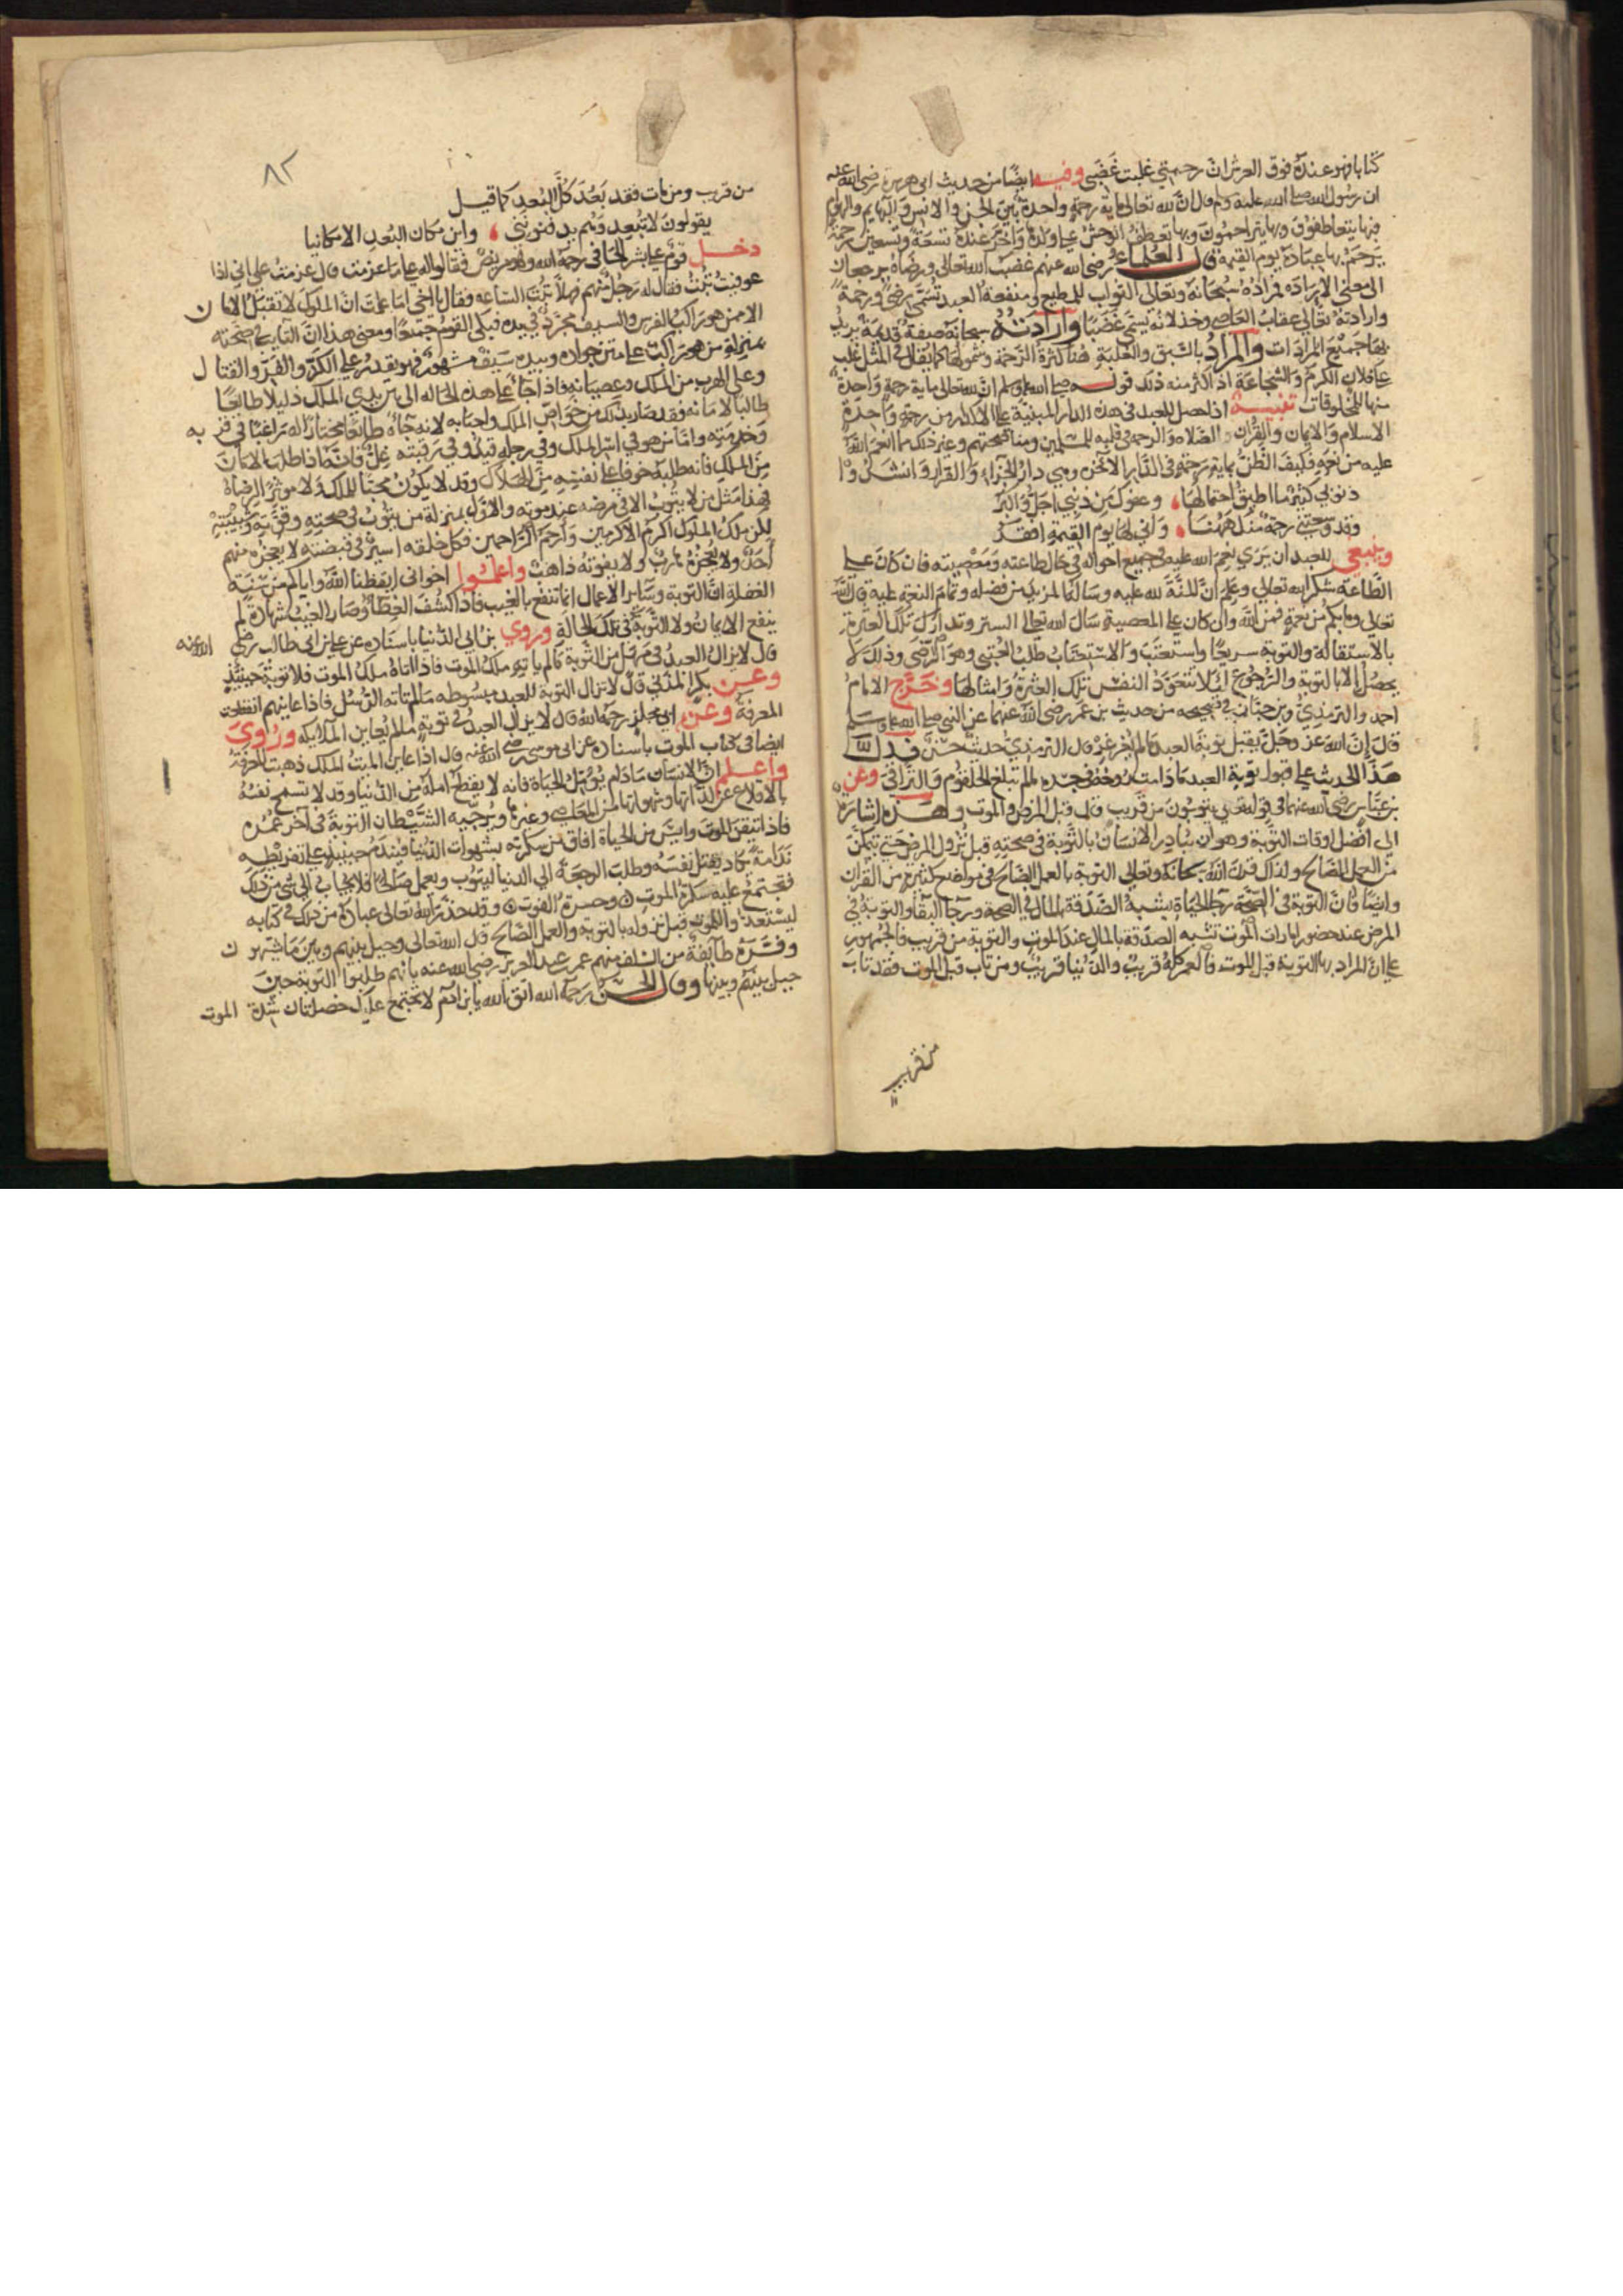 كتابا فهو عنده فوق العرش ان رحمتي غلبت غضبي وفيه ايضا من حديث ابي هريرة رضي الله عنه
ان رسول الله صلى الله عليه وسلم قال ان لله تعالى ماية رحمة واحدة بين الجن والانس والبهايم والهوام
فبها يتعاطفون وبها يتراحمون وبها تعطف الوحش على ولدها واخر عنده تسعة وتسعين رحمة
يرحم بها عباده يوم القيمة قال العلماء رضي الله عنهم غضب الله تعالى ورضاه يرجعان
الى معنى الارادة فمراده سبحانه وتعالى الثواب للمطيع ومنفعة العبد تسمى رضى ورحمة
وارادته تعالى عقاب العاصي وخذلانه يسمى غضبا وارادته سبحانه صفة قديمة يريد
بها جميع المرادات والمراد بالسبق والغلبة هنا كثرة الرحمة وشمولها كما يقال في المثل غلب
على فلان الكرم والشجاعة اذا اكثر منه ذلك قوله صلى الله عليه وسلم ان لله تعالى ماية رحمة واحدة
منها للمخلوقات تنبيه اذا حصل للعبد في هذه الدار المبنية على الاكدار من رحمة واحدة
الاسلام والايمان والقران والصلاه والرحمه في قلبه للمسلمين ومناصحتهم وغير ذلك مما انعم الله
عليه من نعمه فكيف الظن بماية رحمة في الدار الاخره وهي دار الجزاء والقرار وانشدوا
ذنوبي كثير ما اطيق احتمالها ، وعفوك من ذنبي اجل واكبر
وقد وسعتني رحمة منك ههنا ، واني لها يوم القيمة افقر
وينبغي للعبد ان يرى نعم الله عليه في جميع احواله في حال طاعته ومعصيته فان كان على
الطاعة شكر الله تعالى وعلم ان المنة لله عليه وساله المزيد من فضله وتمام النعم عليه قال الله
تعالى وما بكم من نعمة فمن الله وان كان على المعصية سال الله تعالى الستر وتدارك تلك العثرة
بالاستقالة والتوبة سريعا واستعتب والاستعتاب طلب العتبى وهو الرضى وذلك لا
يحصل الا بالتوبة والرجوع لئلا تتعود النفس تلك العثرة وامثالها وخرج الامام
احمد والترمذي وبن حبان في صحيحه من حديث بن عمر رضي الله عنهما عن النبي صلى الله عليه وسلم
قال ان الله عز وجل يقبل توبة العبد مالم يغرغر قال الترمذي حديث حسن فدل
هذا الحديث على قبول توبة العبد مادامت روحه في جسده لم تبلغ الحلقوم والتراقي وعن
بن عباس رضي الله عنهما في قوله تعالى يتوبون من قريب قال قبل المرض والموت وهذه اشارة
الى افضل اوقات التوبة وهو ان يبادر الانسان بالتوبة في صحته قبل نزول المرض حتى يتمكن
من العمل الصالح ولذلك قرن الله سبحانه وتعالى التوبة بالعمل الصالح في مواضع كثيرة من القران
وايضا فان التوبة في الصحة ورجا الحياة يشبه الصدقة بالمال في الصحة ورجا البقا والتوبة في
المرض عند حضور امارات الموت تشبه الصدقة بالمال عند الموت والتوبة من قريب فالجمهور
على ان المراد بها التوبة قبل الموت فالعمر كله قريب والدنيا قريب ومن تاب قبل الموت فقد تاب
من قريب
٨٢
من قريب ومن مات فقد بعد كل البعد كما قيل
يقولون لا تبعد وهم يدفنونني ، واين مكان البعد الا مكانيا
دخل قوم على بشر الحافي رحمه الله وهو مريض فقالوا له على ما عزمت قال عزمت على اني اذا
عوفيت تبت فقال له رجل منهم فهلا تبت الساعه فقال يا اخي اما علمت ان الملوك لا تقبل الامان
الا ممن هو راكب الفرس والسيف مجرد في يده فبكى القوم جميعا ومعنى هذا ان التايب في صحته
بمنزلة من هو راكب على متن جواده وبيده سيف مشهور فهو يقدر على الكر والفر والقتال
وعلى الهرب من الملك وعصيانه فاذا جاء على هذه الحاله الى بين يدي الملك ذليلا طايعا
طالبا لامانه فقد صار بذلك من خواص الملك واحبابه لانه جاه طايعا مختارا له راغبا في قربه
وخدمته واما من هو في اسر الملك وفي رجله قيد وفي رقبته غل فانه اذا طلب الامان
من الملك فانه طلبه خوفا على نفسه من الهلاك وقد لا يكون محبا للملك ولا موثرا لرضاه
فهذا مثل من لا يتوب الا في مرضه عند موته والاول بمنزلة من يتوب في صحته وقوته وشبيبته
لكن ملك الملوك اكرم الاكرمين وارحم الراحمين فكل خلقه اسير في قبضته لا يعجزه منهم
احد ولا يعجزه هارب ولا يفوته ذاهب واعلموا اخواني ايقظنا الله واياكم من سنة
الغفلة ان التوبة وساير الاعمال انما تنفع بالغيب فاذا كشف الغطا وصار الغيب شهادة لم
ينفع الايمان ولا التوبة في تلك الحالة وروي بن ابي الدنيا باسناده عن علي بن ابي طالب رضي الله عنه
قال لا يزال العبد في مهل من التوبة مالم ياتيه ملك الموت فاذا اتاه ملك الموت فلا توبة حينيذ
وعن بكر المزني قال لا تزال التوبة للعبد مبسوطه مالم تاته الرسل فاذا عاينهم انقطعت
المعرفة وعن ابي مجلز رحمه الله قال لا يزال العبد في توبة مالم يعاين الملايكه وروى
ايضا في كتاب الموت باسناده عن ابي موسى رضي الله عنه قال اذا عاين الميت الملك ذهبت المعرفة
واعلم ان الانسان مادام يؤمل الحياة فانه لا يقطع امله من الدنيا وقد لا تسمح نفسه
بالاقلاع عن لذاتها وشهواتها من المعاصي وغيرها ويرجيه الشيطان التوبة في آخر عمره
فاذا تيقن الموت وايس من الحياة افاق من سكرته بشهوات الدنيا فيندم حينيذ على تفريطه
ندامة يكاد يقتل نفسه وطلب الرجعة الى الدنيا ليتوب ويعمل صالحا فلا يجاب الى شي من ذلك
فتجتمع عليه سكرة الموت وحسرة الفوت وقد حذر الله تعالى عباده من ذلك في كتابه
ليستعدوا للموت قبل نزوله بالتوبة والعمل الصالح قال الله تعالى وحيل بينهم وبين ما يشتهون
وفسره طايفة من السلف منهم عمر بن عبد العزيز رضي الله عنه بانهم طلبوا التوبة حين
حيل بينهم وبينها وقال الحسن رحمه الله اتق الله يا بن ادم لا تجتمع عليك خصلتان شدة الموت